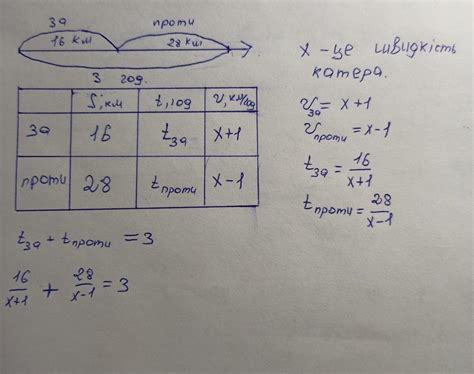 за проти
16 км 28 км
3 год.
S, км t, год v, км/год
за 16 tза x+1
проти 28 tпроти x-1
tза + tпроти = 3
16/x+1 + 28/x-1 = 3
x - це швидкість
катера.
vза = x+1
vпроти = x-1
tза = 16/x+1
tпроти = 28/x-1